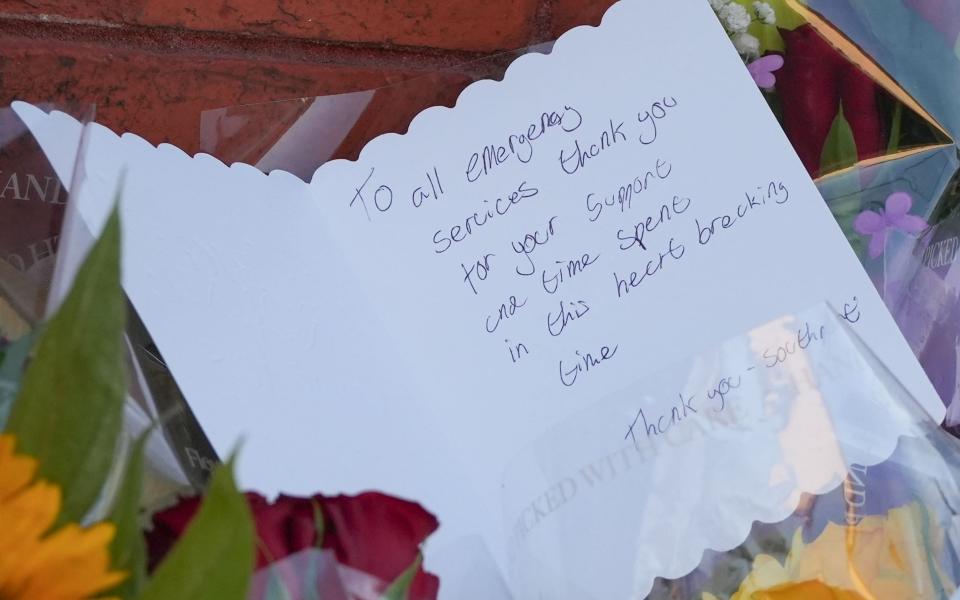 To all emergency
services thank you
for your support
and time spent
in this heart breaking
time
Thank you -
PICKED WITH CARE
AND
PICKED